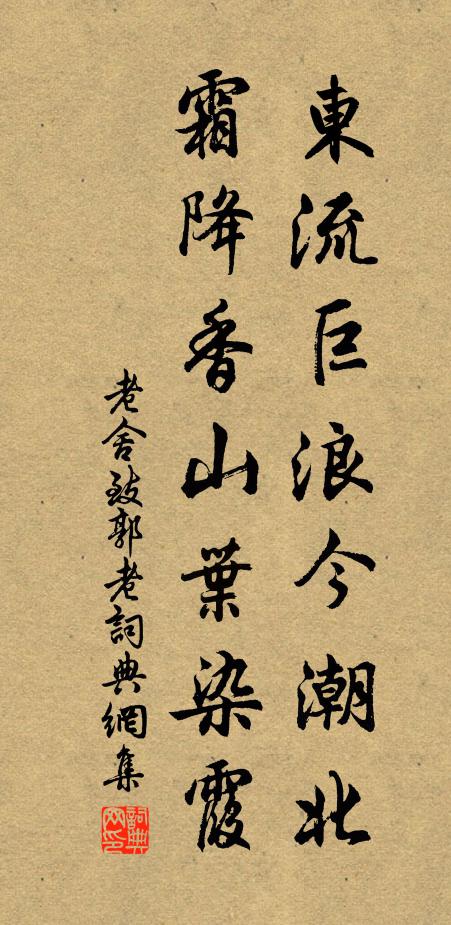 東流巨浪今潮北
霜降香山葉染霞
老舍致郭老詞典網集
詞典網印